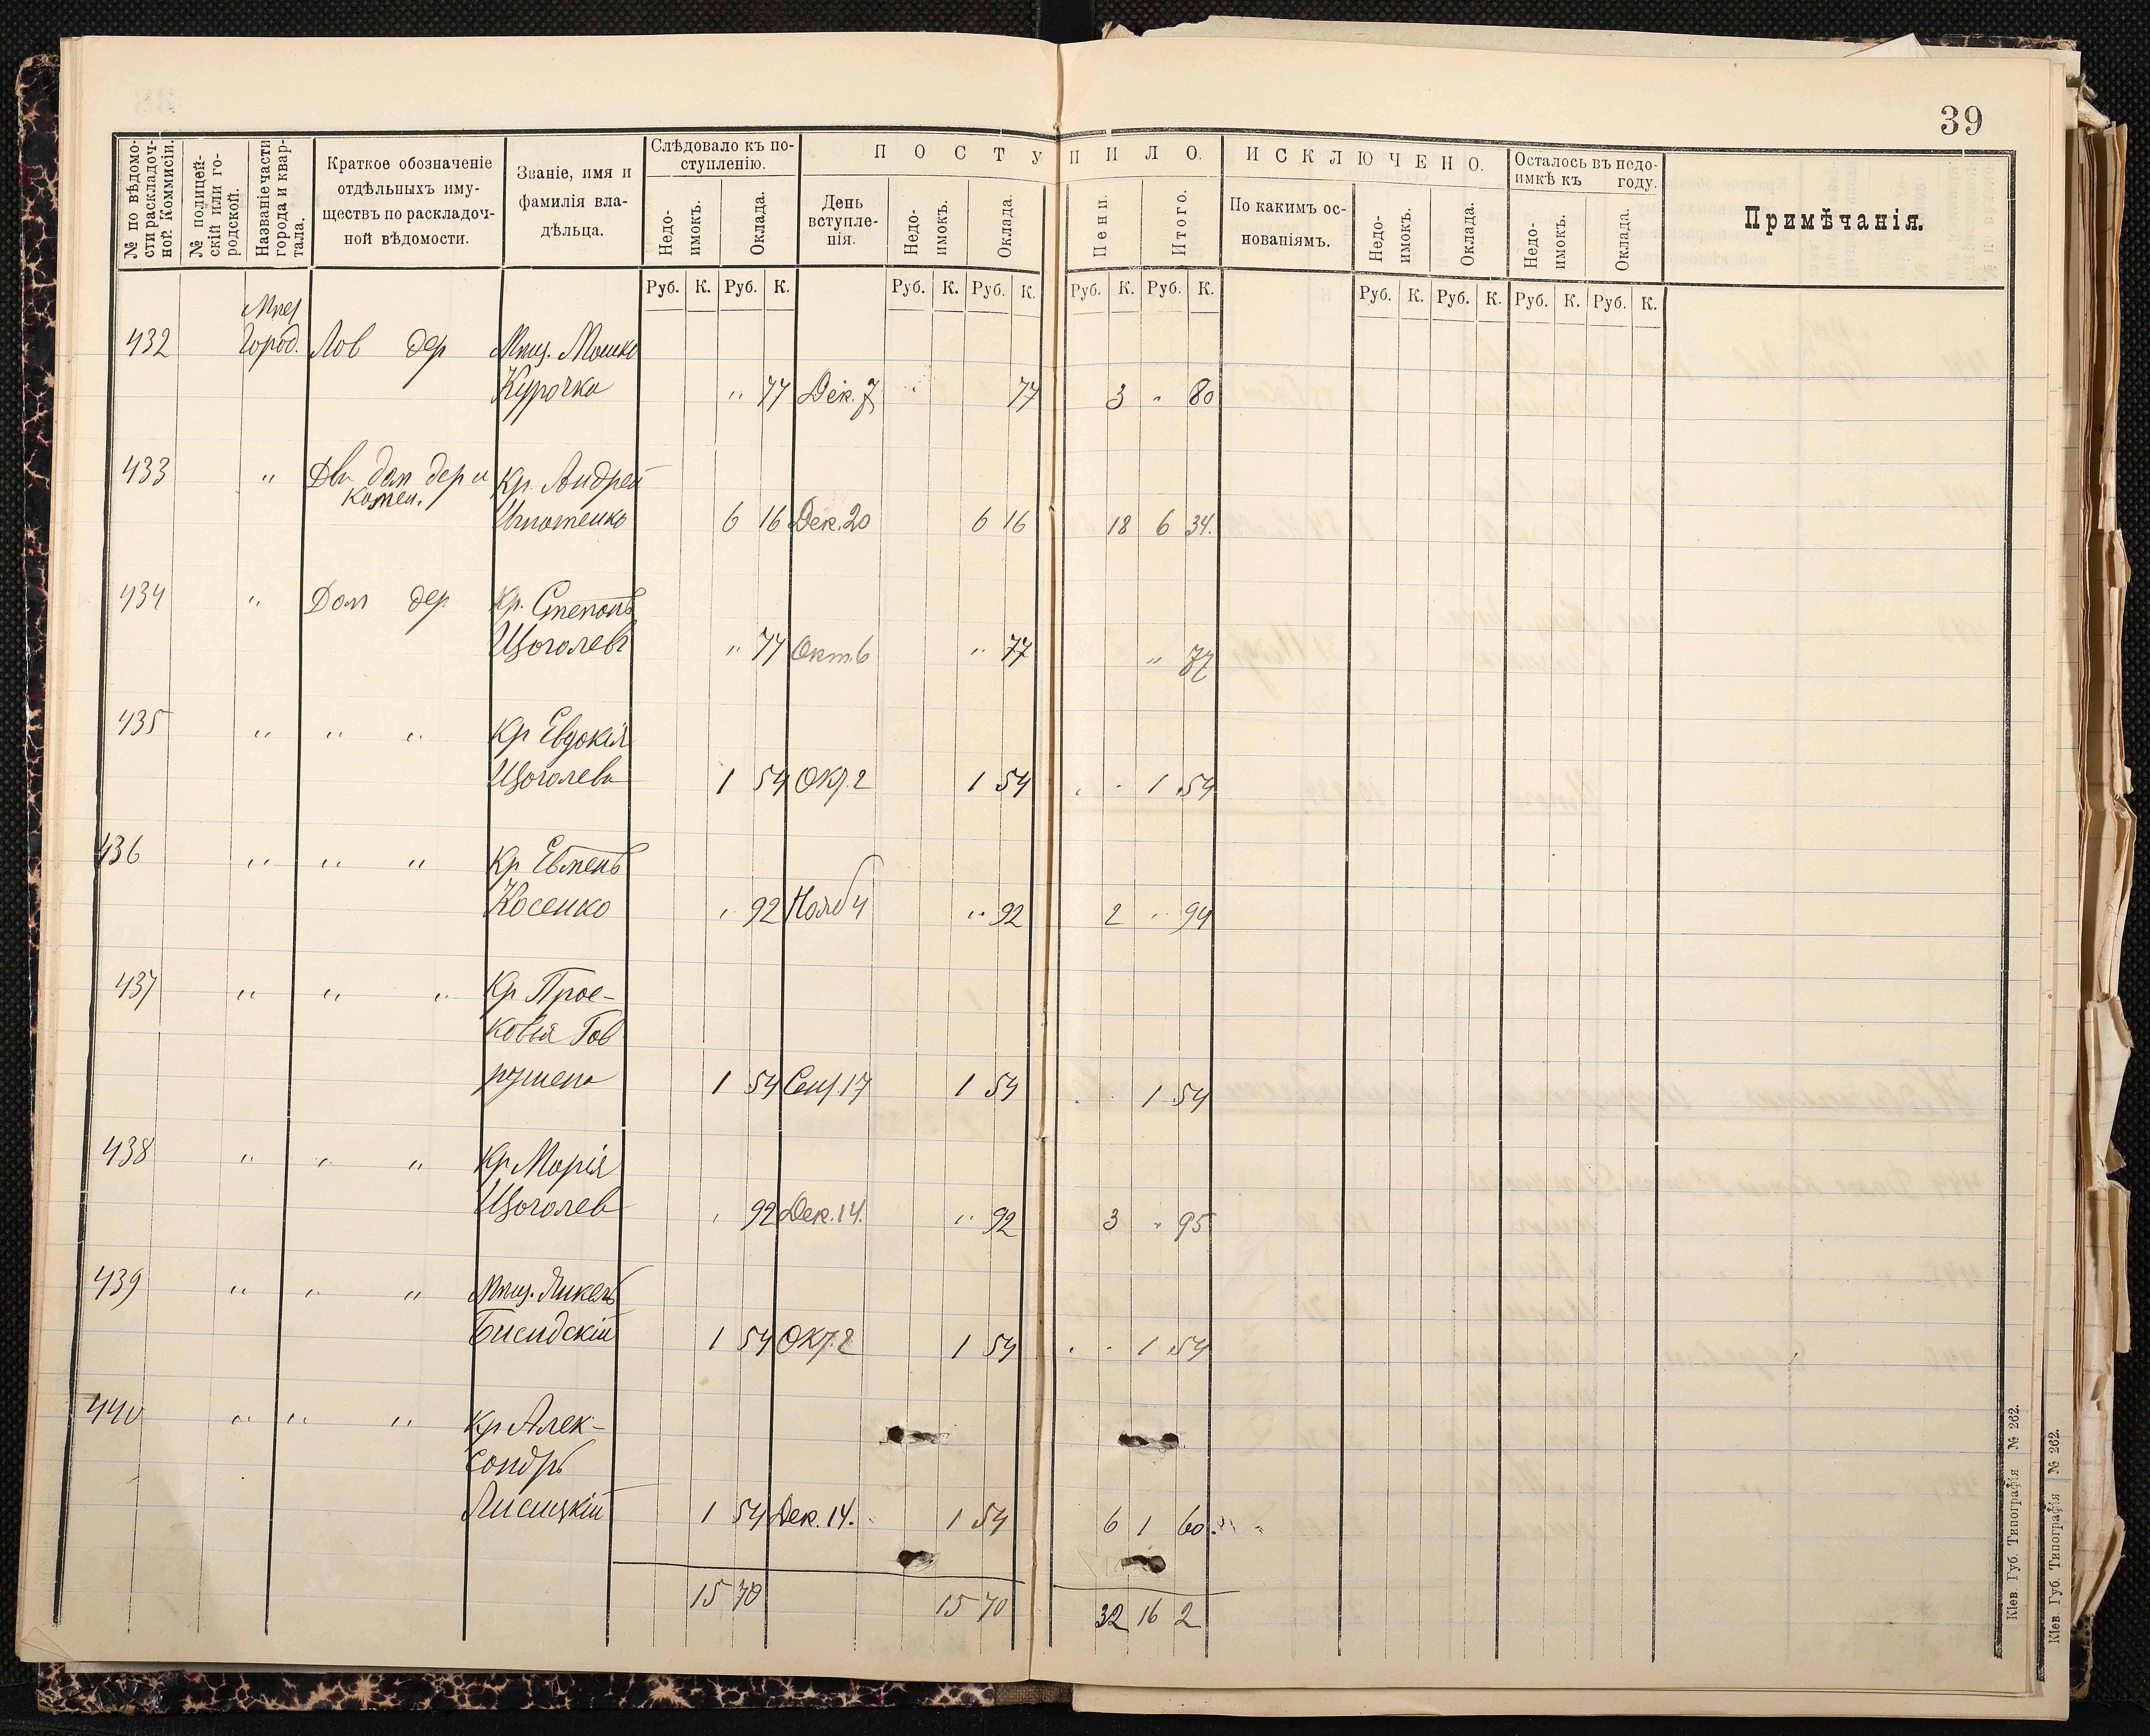 39
№ по вѣдомости раскладочной Коммисіи.
№ полицейскій или городской.
Названіе части города и квартала.
Краткое обозначеніе
отдѣльныхъ иму-
ществъ по раскладоч-
ной вѣдомости.
Званіе, имя и
фамилія вла-
дѣльца.
Слѣдовало къ по-
ступленію.
Недо-
имокъ.
Оклада.
ПОСТУПИЛО.
День
вступле-
нія.
Недо-
имокъ.
Оклада.
Пени.
Итого.
ИСКЛЮЧЕНО.
По какимъ ос-
нованіямъ.
Недо-
имокъ.
Оклада.
Осталось въ недо-
имкѣ къ году.
Недо-
имокъ.
Оклада.
Примѣчанія.
Руб. К. Руб. К. Руб. К. Руб. К. Руб. К. Руб. К. Руб. К. Руб. К. Руб. К. Руб. К.
432 Город. Лав дер Мѣщ. Мошко
Курочка " 77 Дек. 7 77 3 " 80
433 " Два дом дер и Кр. Андрей
камен.
Игнатенко 6 16 Дек. 20 6 16 18 6 34.
434 " Дом дер Кр. Степанъ
Щоголевъ " 77 Окт 6 " 77 " 77
435 " " " Кр Евдокія
Щоголева 1 54 Окт. 2 1 54 " " 1 54
436 " " " Кр Евменъ
Косенко " 92 Нояб 4 " 92 2 " 94
437 " " " Кр Прос-
ковья Гав
1 54 Сент. 17 1 54 1 54
438 " " " Кр Марія
Щоголев " 92 Дек. 14. " 92 3 " 95
439 " " " Мѣщ. Янкель
1 54 Окт. 2 1 54 " " 1 54
440 " " " Кр Алек-
сандръ
Лисицкій 1 54 Дек. 14. 1 54 6 1 60.
15 70 15 70 32 16 2
Кіев. Губ. Типографія № 262.
Кіев. Губ. Типографія № 262.